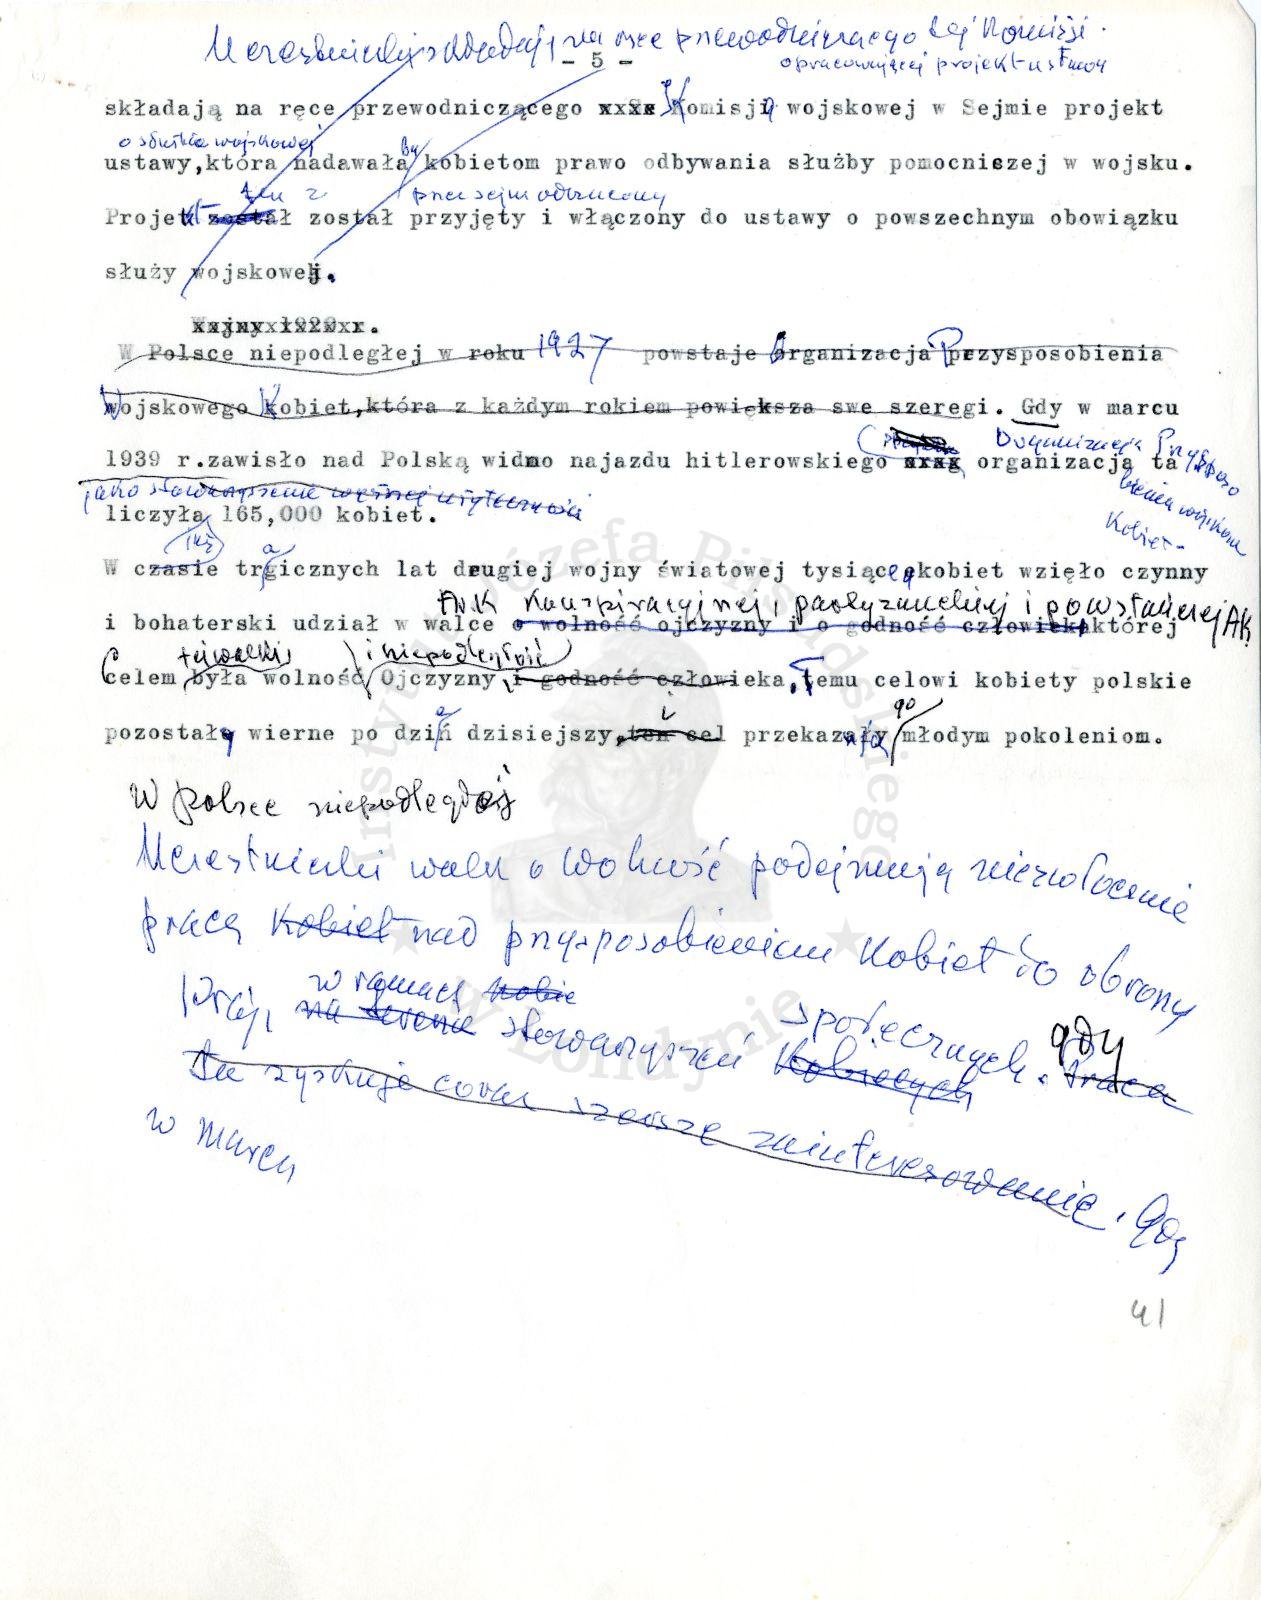 Uczestniczki składają na ręce przewodniczącego tej Komisji.
- 5 -
opracowującej projekt ustawy
składają na ręce przewodniczącego xxxx Komisji wojskowej w Sejmie projekt
o służbie wojskowej
by
ustawy,która nadawała kobietom prawo odbywania służby pomocniszej w wojsku.
ten z
przez sejm odrzucony
Projekt został został przyjęty i włączony do ustawy o powszechnym obowiązku
służy wojskowej.
Wojny x1920xr.
W Polsce niepodległej w roku 1927 powstaje Organizacja Przysposobienia
Wojskowego Kobiet,która z każdym rokiem powiększa swe szeregi. Gdy w marcu
Organizacja Przysposo
1939 r.zawisło nad Polską widmo najazdu hitlerowskiego xrxg organizacją ta
bienia wojskow
jako stowarzyszenie wyższej użyteczności
Kobiet-
liczyła 165,000 kobiet.
a
W czasie trgicznych lat drugiej wojny światowej tysiące kobiet wzięło czynny
konspiracyjnej, partyzanckiej i powstańczej AK
i bohaterski udział w walce o wolność ojczyzny i o godność człowieka której
tej walki
i niepodległość
Celem była wolność Ojczyzny i godność człowieka,Temu celowi kobiety polskie
a
i
go
pozostały wierne po dziń dzisiejszy,ten cel przekazały młodym pokoleniom.
W Polsce niepodległej
Uczestniczki walk o wolność podejmują niezwłocznie
pracę kobiet nad przysposobieniem Kobiet do obrony
w ramach kobie
Kraju, na terenie stowarzyszeń Kobiecych społecznych. gdy Praca
Ta zyskuje coraz szersze zainteresowanie. Gdy
w marcu
41
Instytut Józefa Piłsudskiego
w Londynie